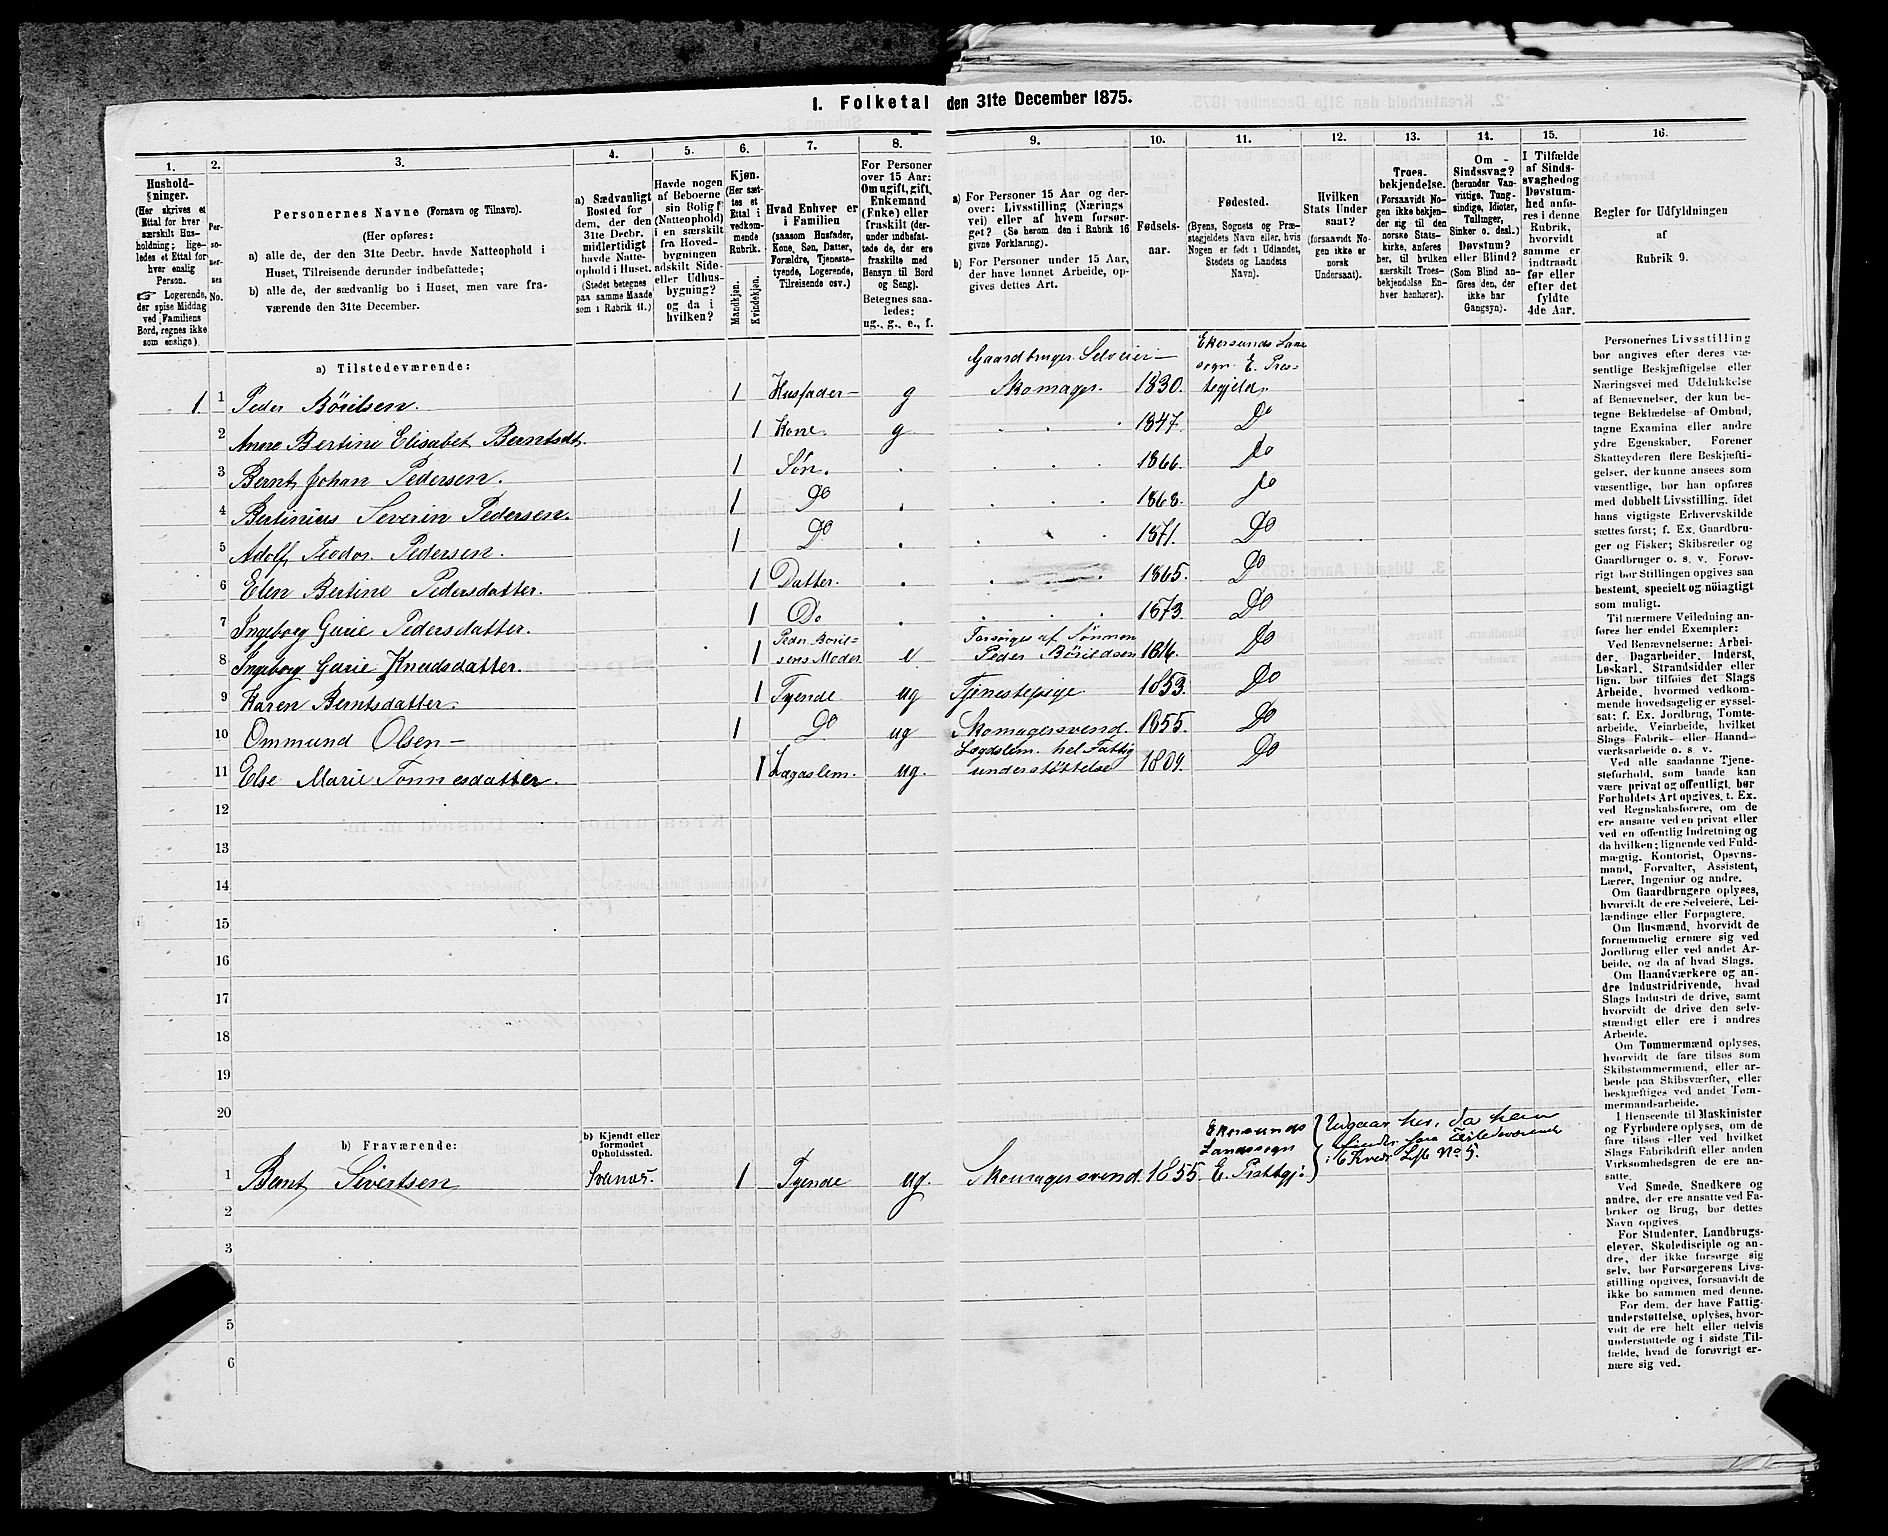 1. Folketal den 31te December 1875.
1. 2. 3. 4. 5. 6. 7. 8. 9. 10. 11. 12. 13. 14. 15. 16.
Hushold-
ninger.
(Her skrives et
Ettal for hver
særskilt Hus-
holdning; lige-
ledes et Ettal for
hver enslig
Person.
☞ Logerende,
der spise Middag
ved Familiens
Bord, regnes ikke
som enslige).
Per-
so-
ner-
nes
No.
Personernes Navne (Fornavn og Tilnavn).
(Her opføres:
a) alle de, der den 31te Decbr. havde Natteophold i
Huset, Tilreisende derunder indbefattede;
b) alle de, der sædvanlig bo i Huset, men vare fra-
værende den 31te December.
a) Sædvanligt
Bosted for
dem, der den
31te Decbr.
midlertidigt
havde Natte-
ophold i Huset.
(Stedet betegnes
paa samme Maade
som i Rubrik 11.)
Havde nogen
af Beboerne
sin Bolig
(Natteophold)
i en særskilt
fra Hoved-
bygningen
adskilt Side-
eller Udhus-
bygning?
og da i
hvilken?
Kjøn.
(Her sæt-
tes et
Ettal i
vedkom-
mende
Rubrik.
Mandkjøn.
Kvindekjøn.
Hvad Enhver er
i Familien
(saasom Husfader,
Kone, Søn, Datter,
Forældre, Tjeneste-
tyende, Logerende,
Tilreisende osv.)
For Personer
over 15 Aar:
Om ugift, gift,
Enkemand
(Enke) eller
fraskilt (der-
under indbefat-
tede de, der ere
fraskilte med
Hensyn til Bord
og Seng).
Betegnes saa-
ledes:
ug., g., e., f.
a) For Personer 15 Aar og der-
over: Livsstilling (Nærings
vei) eller af hvem forsør-
get? (Se herom den i Rubrik 16
givne Forklaring).
b) For Personer under 15 Aar,
der have lønnet Arbeide, op-
gives dettes Art.
Fødsels-
aar.
Fødested.
(Byens, Sognets og Præ-
stegjeldets Navn eller, hvis
Nogen er født i Udlandet,
Stedets og Landets
Navn).
Hvilken
Stats Under
saat?
(forsaavidt No-
gen ikke er
norsk
Undersaat).
Troes-
bekjendelse.
(Forsaavidt No-
gen ikke bekjen-
der sig til den
norske Stats-
kirke, anføres
her, til hvilken
særskilt Troes-
bekjendelse En-
hver henhører).
Om
Sindssvag?
(herunder Van-
vittige, Tung-
sindige, Idioter,
Tullinger,
Sinker o. desl.)
Døvstum?
eller Blind?
(Som Blind an-
føres den, der
ikke har
Gangsyn).
I Tilfælde
af Sinds-
svaghed og
Døvstum-
hed anfø-
res i denne
Rubrik,
hvorvidt
samme er
indtraadt
før eller
efter det
fyldte
4de Aar.
Regler for Udfyldningen
af
Rubrik 9.
a) Tilstedeværende:
Gaardbruger Selveier
Ekersunds Lane
sogn E. Præs-
1 1 Peder Börilsen. 1 Husfader g Skomager. 1830. tegjeld.
2 Anne Bertine Elisabet Berntsdt. 1 Kone. g 1847. Do
3 Bernt Johan Pedersen. 1 Søn. 1866. Do
4 Bertinius Severin Pedersen. 1 Do 1868. Do
5 Adolf Teodor Pedersen 1 Do 1871. Do
6 Elen Bertine Pedersdatter. 1 Datter. 1865. Do
7 Ingeborg Gurie Pedersdatter. 1 Do 1873. Do
Peder Boril- Forsörges af Sönnen
8 Ingeborg Gurie Knudsdatter. 1 sens Moder e Peder Börildsen 1816. Do
9 Karen Berntsdatter. 1 Tyende ug Tjenestepige 1853. Do
10 Ommund Olsen 1 Do ug Skomagersvend. 1855. Do
Lægdslem. hel Fattig
11 Else Marie Tønnesdatter. 1 Lægdslem. ug. understøttelse 1809. Do
12
13
14
15
16
17
18
19
20
b) Fraværende:
b) Kjendt eller
formodet
Opholdssted.
Ekersunds
Landsogn
Udgaar her, da ham
findes som Tilstedeværende
i 6 Kreds Lste No 5.
1 Bernt Sivertsen Svanæs. 1 Tyende ug. Skomagersvend. 1855. E. Prstgj.
2
3
5
6
Personernes Livsstilling
bør angives efter deres væ-
sentlige Beskjæftigelse eller
Næringsvei med Udelukkelse
af Benævnelser, der kun be-
tegne Beklædelse af Ombud,
tagne Examina eller andre
ydre Egenskaber. Forener
Skatteyderen flere Beskjæfti-
gelser, der kunne ansees som
væsentlige, bør han opføres
med dobbelt Livsstilling, idet
hans vigtigste Erhvervskilde
sættes først; f. Ex. Gaardbru-
ger og Fisker; Skibsreder og
Gaardbruger o. s. v. Forøv-
rigt bør Stillingen opgives saa
bestemt, specielt og nöiagtigt
som muligt.
Til nærmere Veiledning an-
føres her endel Exempler:
Ved Benævnelserne: Arbei-
der, Dagarbeider, Inderst,
Løskarl, Strandsidder eller
lign. bør tilføies det Slags
Arbeide, hvormed vedkom-
mende hovedsagelig er syssel-
sat; f. Ex. Jordbrug, Tomte-
arbeide, Veiarbeide, hvilket
Slags Fabrik- eller Haand-
værksarbeide o. s. v.
Ved alle saadanne Tjene-
steforhold, som baade kan
være privat og offentligt, bør
Forholdets Art opgives, t. Ex.
ved Regnskabsførere, om de
ere ansatte ved en privat eller
ved en offentlig Indretning og
da hvilken; lignende ved Fuld-
mægtig, Kontorist, Opsyns-
mand, Forvalter, Assistent,
Lærer, Ingeniør og andre.
Om Gaardbrugere oplyses,
hvorvidt de ere Selveiere, Lei-
lændinge eller Forpagtere.
Om Husmænd, hvorvidt de
fornemmelig ernære sig ved
Jordbrug eller ved andet Ar-
beide, og da af hvad Slags.
Om Haandværkere og an-
dre Industridrivende, hvad
Slags Industri de drive, samt
hvorvidt de drive den selv-
stændigt eller ere i andres
Arbeide.
Om Tømmermænd oplyses,
hvorvidt de fare tilsøs som
Skibstømmermænd, eller ar-
beide paa Skibsværfter, eller
beskjæftiges ved andet Tøm-
mermandsarbeide.
I Henseende til Maskinister
og Fyrbødere oplyses, om de
fare tilsøs eller ved hvilket
Slags Fabrikdrift eller anden
Virksomhedsgren de ere an-
satte.
Ved Smede, Snedkere og
andre, der ere ansatte ved Fa-
briker og Brug, bør dettes
Navn opgives.
For Studenter, Landbrugs-
elever, Skoledisciple og an-
dre, der ikke forsørge sig
selv, bør Forsørgerens Livs-
stilling opgives, forsaavidt de
ikke bo sammen med denne.
For dem, der have Fattig-
understøttelse, oplyses, hvor-
vidt de ere helt eller delvis
understøttede og i sidste Til-
fælde, hvad de forøvrigt er-
nære sig ved.